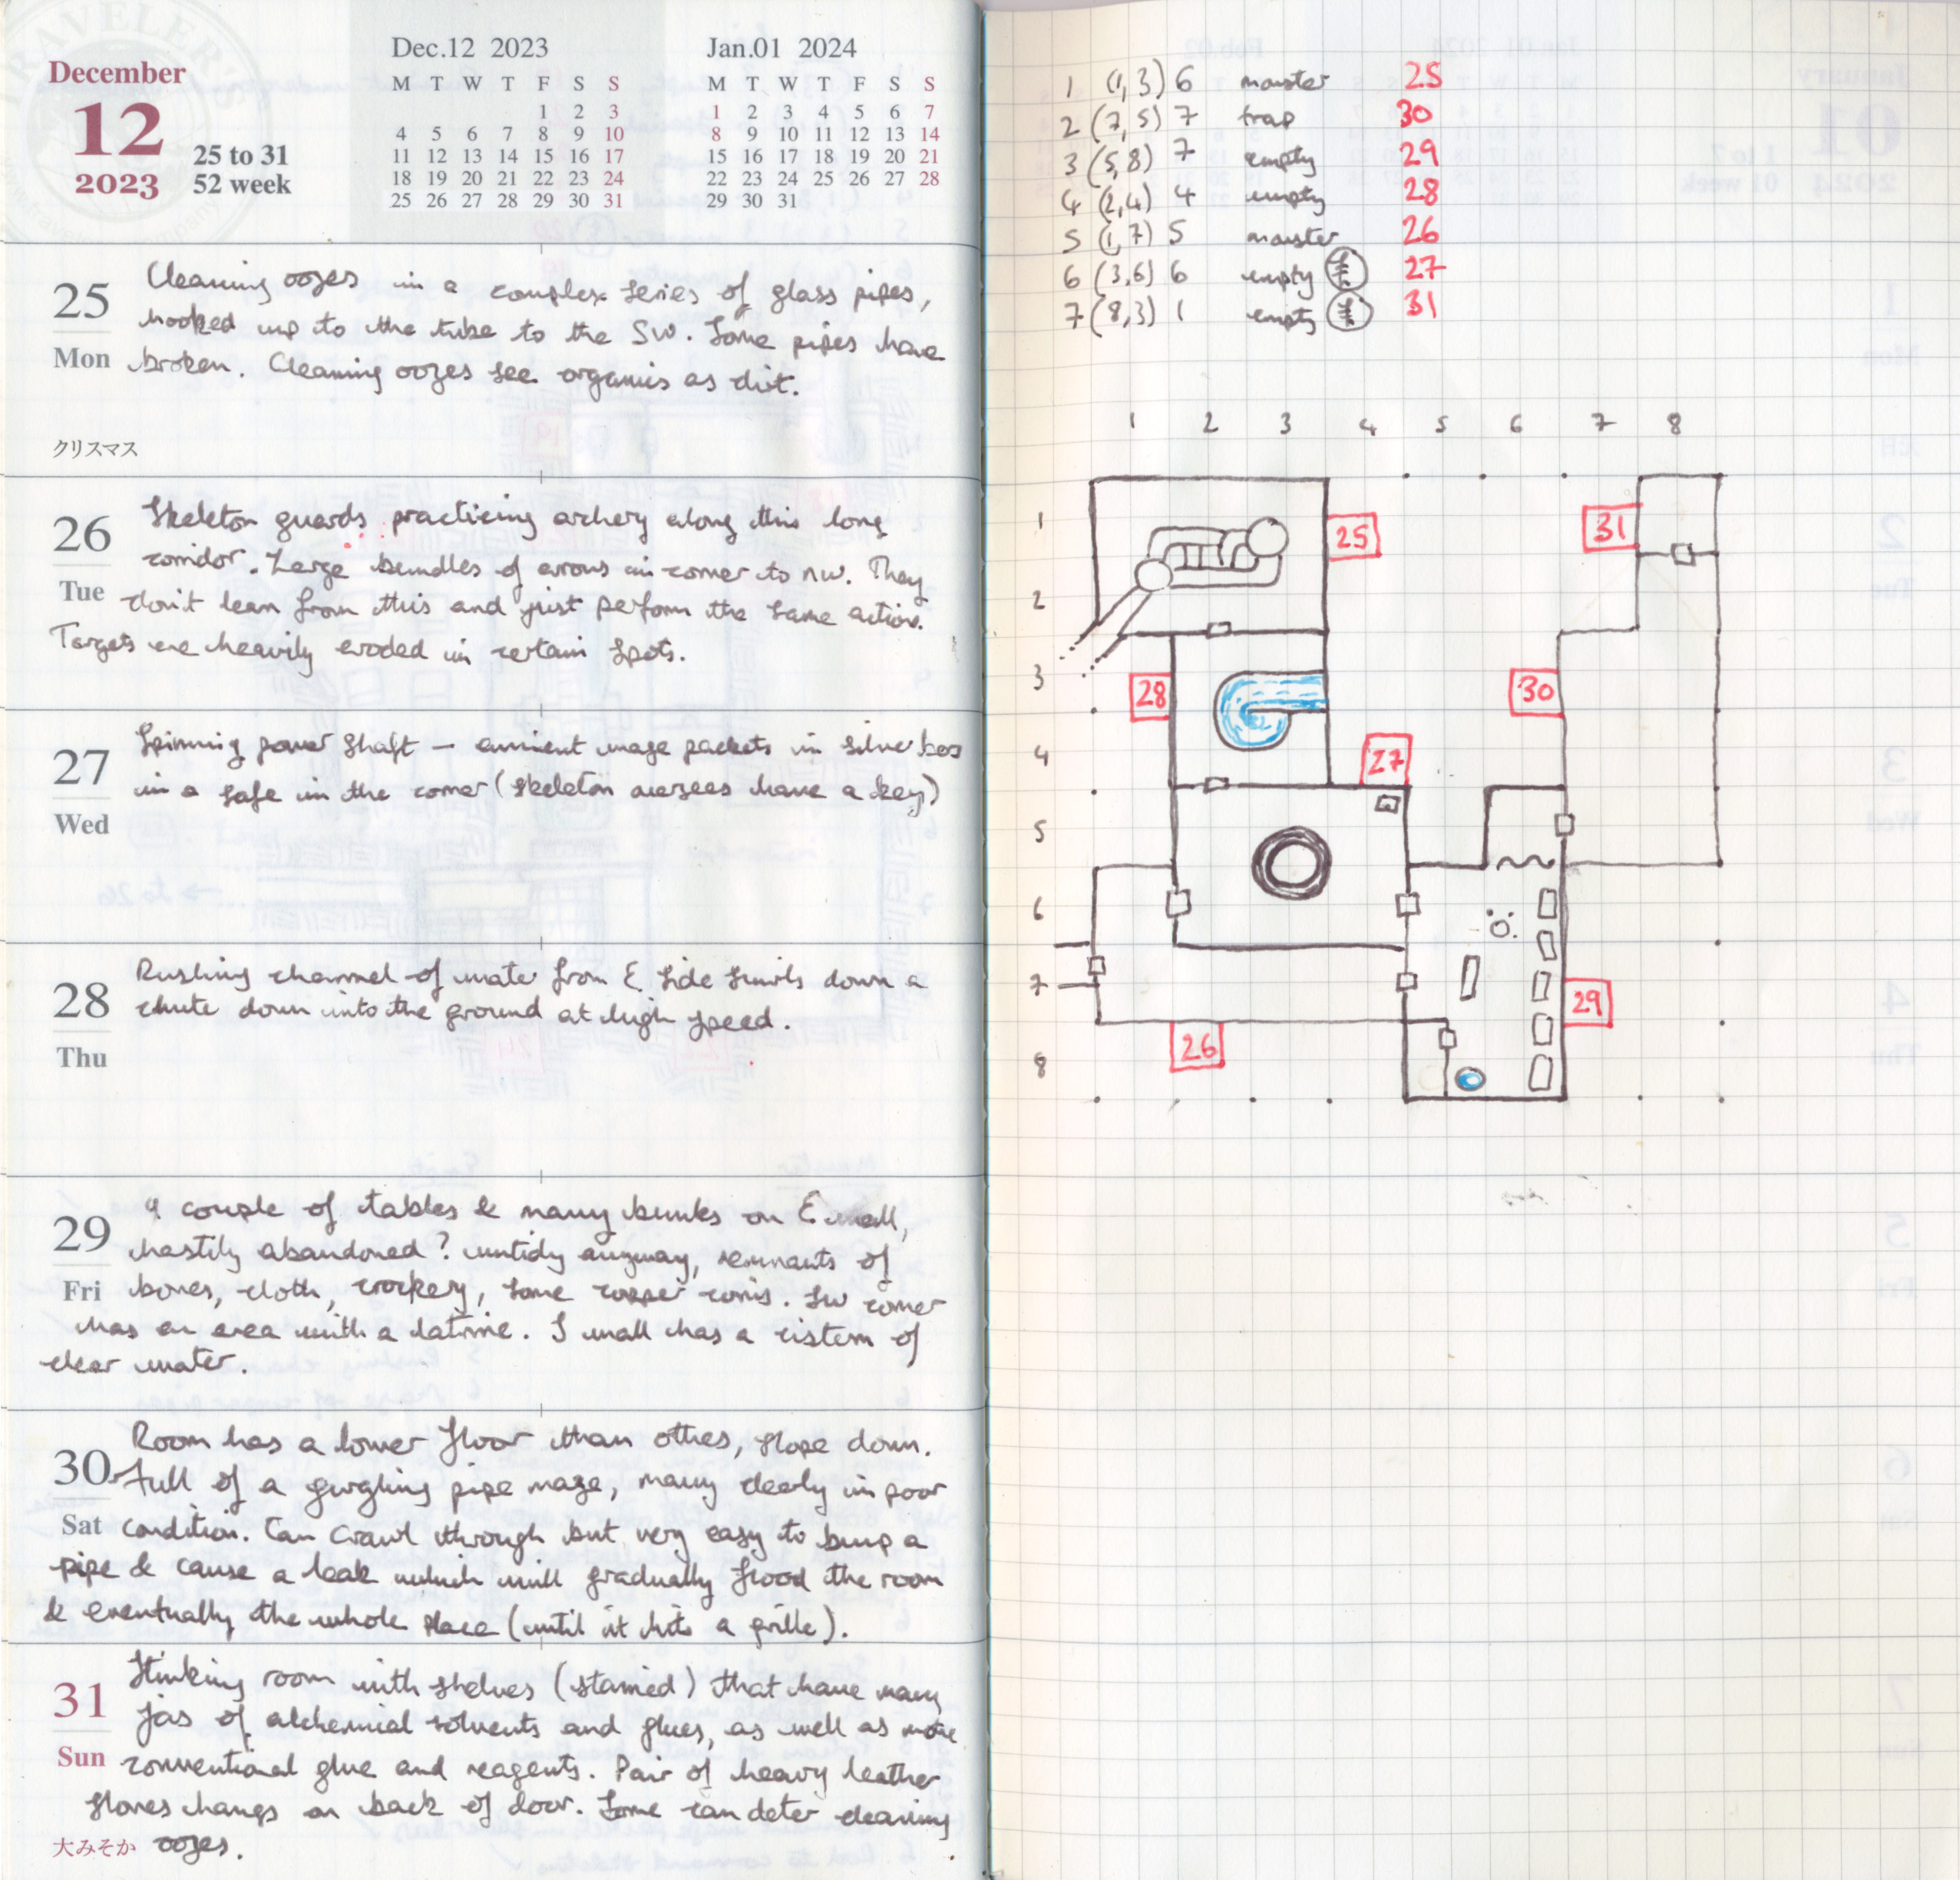 TRAVELER'S
December
12
2023
25 to 31
52 week
Dec.12 2023
M T W T F S S
1 2 3
4 5 6 7 8 9 10
11 12 13 14 15 16 17
18 19 20 21 22 23 24
25 26 27 28 29 30 31
Jan.01 2024
M T W T F S S
1 2 3 4 5 6 7
8 9 10 11 12 13 14
15 16 17 18 19 20 21
22 23 24 25 26 27 28
29 30 31
25
Mon
クリスマス
Cleaning oozes in a complex series of glass pipes,
hooked up to the tube to the SW. Some pipes have
broken. Cleaning oozes see organics as dirt.
26
Tue
Skeleton guards practicing archery along this long
corridor. Large bundles of arrows in corner to NW. They
don't learn from this and just perform the same action.
Targets are heavily eroded in certain spots.
27
Wed
Spinning power shaft – ancient mage packets in silver box
in a safe in the corner (skeleton overseers have a key)
28
Thu
Rushing channel of water from E side swirls down a
chute down into the ground at high speed.
29
Fri
A couple of tables & many bunks on E wall,
hastily abandoned? untidy anyway, remnants of
bones, cloth, crockery, some copper coins. SW corner
has an area with a latrine. S wall has a cistern of
clear water.
30
Sat
Room has a lower floor than others, slope down.
Full of a gurgling pipe maze, many clearly in poor
condition. Can crawl through but very easy to bump a
pipe & cause a leak which will gradually flood the room
& eventually the whole place (until it hits a grille).
31
Sun
大みそか
Stinking room with shelves (stained) that have many
jars of alchemical solvents and glues, as well as more
conventional glue and reagents. Pair of heavy leather
gloves hangs on back of door. Some can deter cleaning
oozes.
1 (1,3) 6 monster 25
2 (7,5) 7 trap 30
3 (5,8) 7 empty 29
4 (2,4) 4 empty 28
5 (1,7) 5 monster 26
6 (3,6) 6 empty 27
7 (8,3) 1 empty 31
1 2 3 4 5 6 7 8
1
2
3
4
5
6
7
8
25
31
28
30
27
29
26